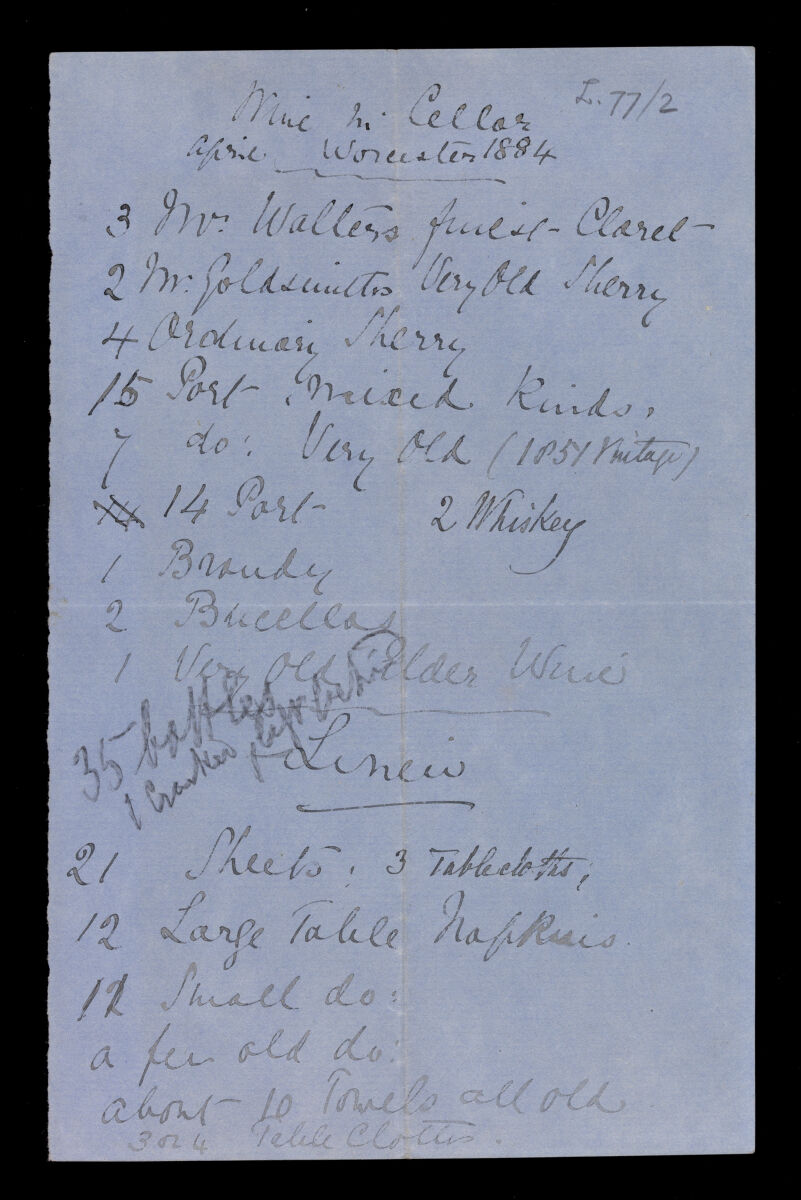 L. 77/2
Wine in Cellar
April Worcester 1884
3 Mr. Walters finest Claret
2 Mr. Goldsmiths Very Old Sherry
4 Ordinary Sherry
15 Port mixed Kinds.
7 do: Very Old (1851 Vintage)
14 Port 2 Whiskey
1 Brandy
2 Bucellas
1 Very Old Elder Wine
35 bottles
1 Cracker left behind
Linen
21 Sheets, 3 Tablecloths,
12 Large Table Napkins.
12 Small do:
a few old do:
about 10 Towels all old
3 or 4 Table Cloths.